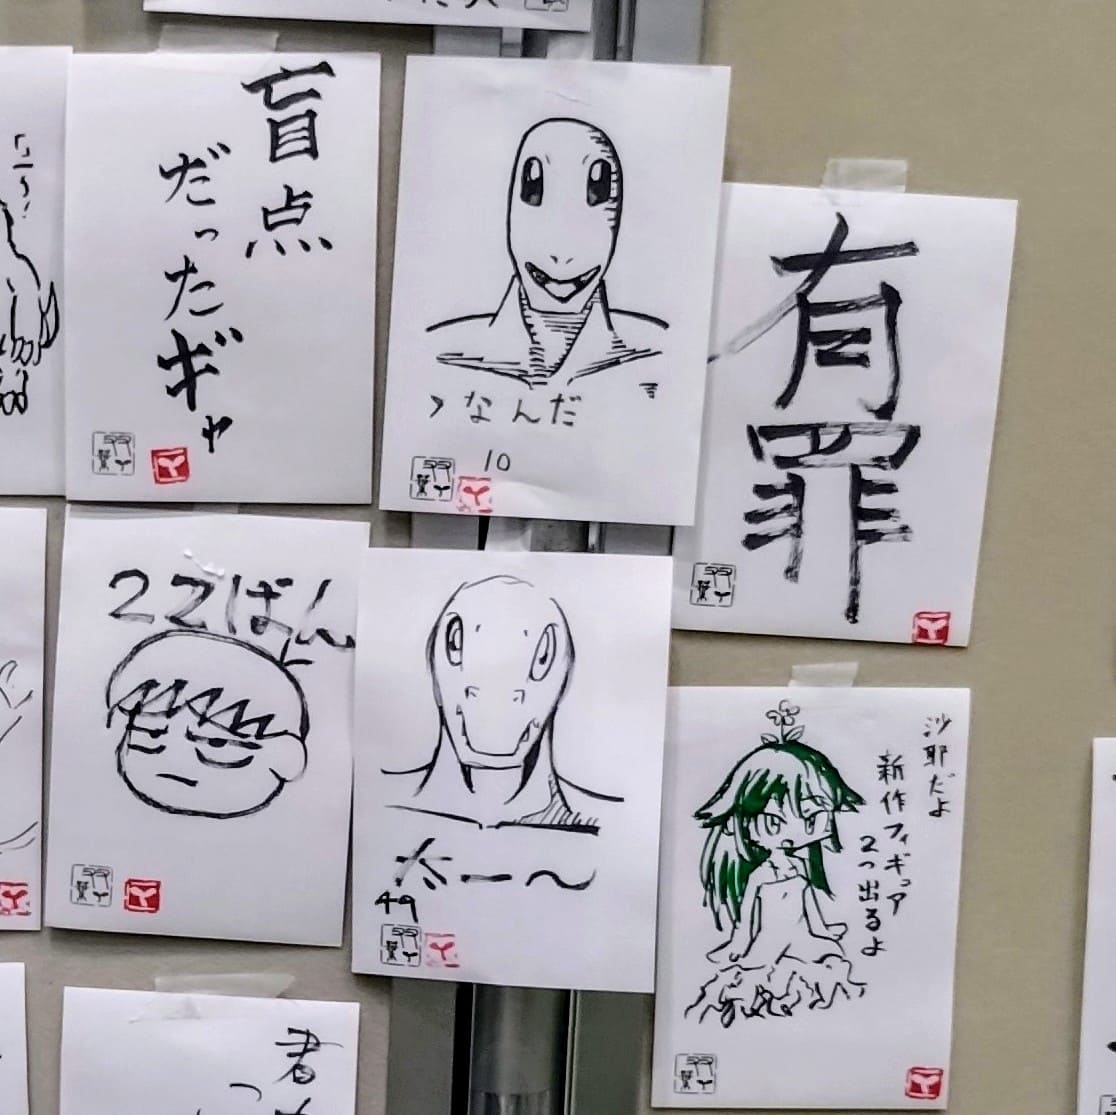 盲点
だったギャ
>なんだ
10
有罪
22ばん
49
沙耶だよ
新作フィギュア
2つ出るよ
君